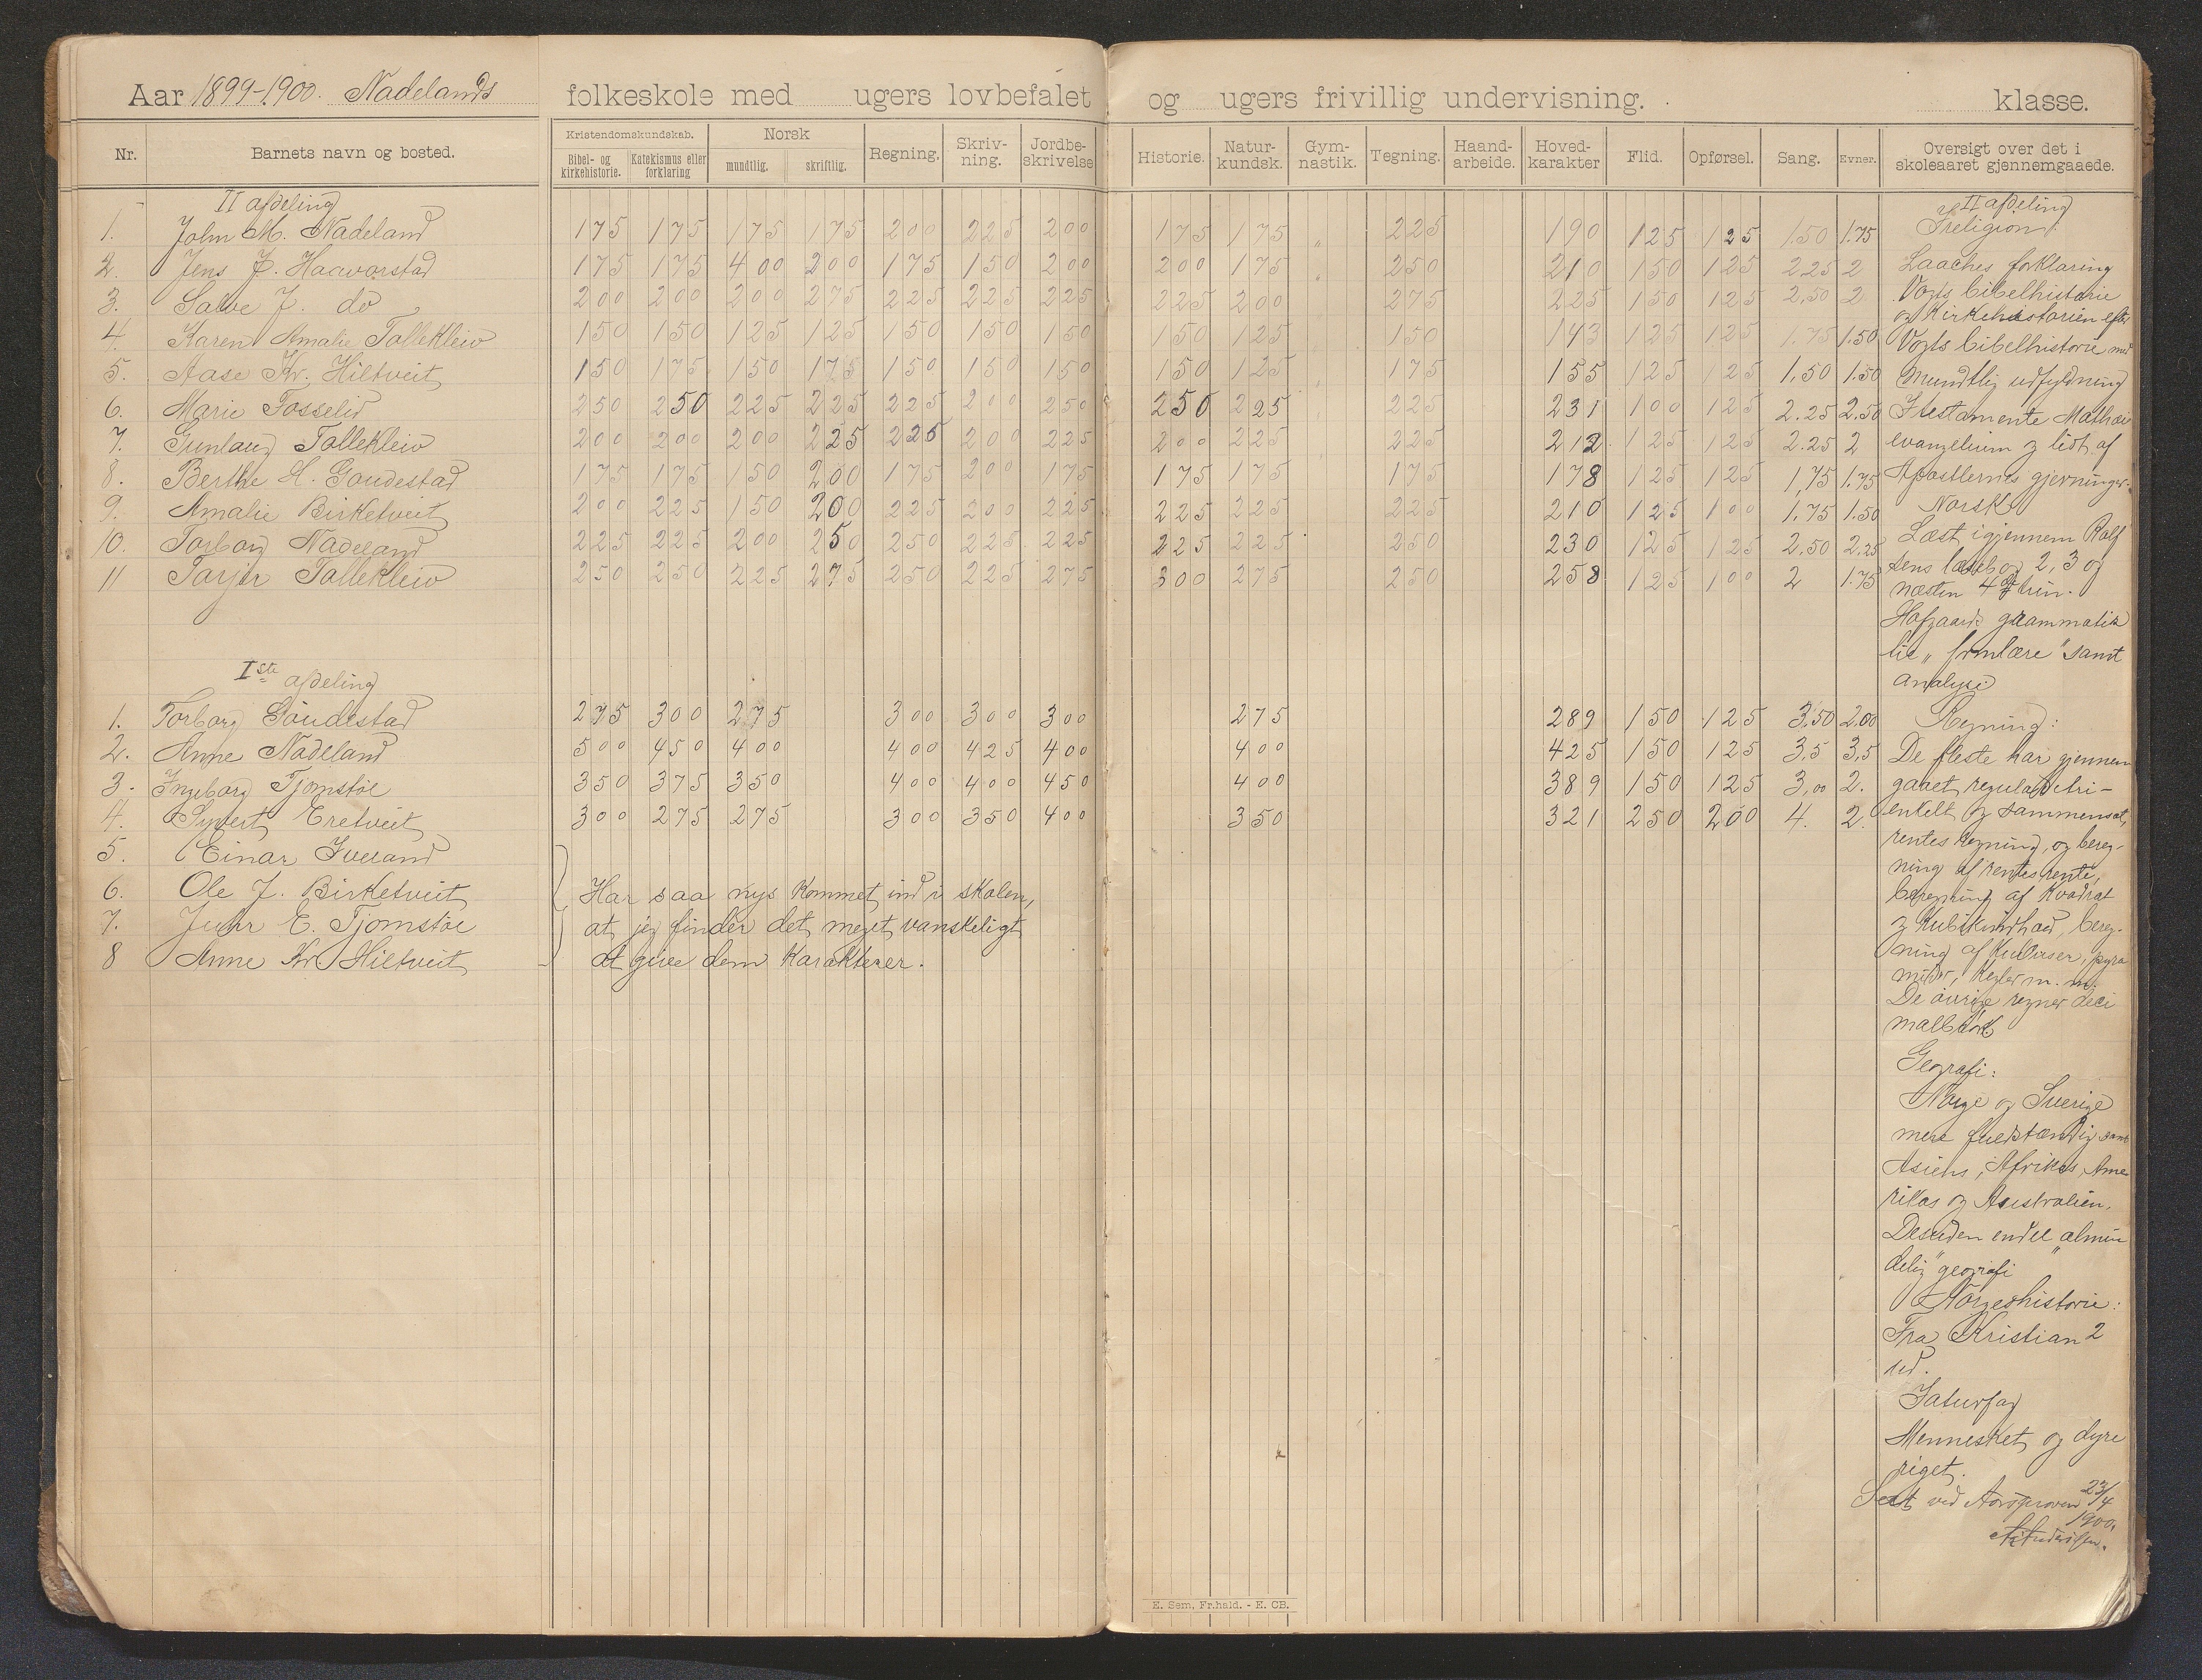 Aar 1899-1900. Nadelands folkeskole med ugers lovbefalet og ugers frivillig undervisning. klasse.
Nr. Barnets navn og bosted. Kristendomskundskab. Bibel- og kirkehistorie. Katekismus eller forklaring Norsk mundtlig. skriftlig. Regning. Skriv-ning. Jordbe-skrivelse Historie. Natur-kundsk. Gym-nastik. Tegning. Haand-arbeide. Hoved-karakter Flid. Opførsel. Sang. Evner. Oversigt over det i skoleaaret gjennemgaaede.
II afdeling
1. John M. Nadeland 175 175 175 175 200 225 200 175 175 " 225 190 125 125 1.50 1.75
2. Jens J. Haavorstad 175 175 400 200 175 150 200 200 175 250 210 150 125 2.25 2
3. Salve J. do 200 200 200 275 225 225 225 225 200 275 225 150 125 2,50 2
4. Karen Amalie Tallekleiv 150 150 125 125 150 150 150 150 125 150 143 125 125 1.75 1.50
5. Aase Kr. Hiltveit 150 175 150 175 150 150 150 150 125 175 155 125 125 1,50 1.50
6. Marie Fosselid 250 250 225 225 225 200 250 250 225 225 231 100 125 2.25 2.50
7. Gunlaug Tallekleiv 200 200 200 225 225 200 225 200 225 225 212 125 125 2.25 2
8. Berthe H. Goudestad 175 175 150 200 175 200 175 175 175 175 178 125 125 1,75 1.75
9. Amalie Birketveit 200 225 150 200 225 200 225 225 225 225 210 125 100 1.75 1.50
10. Torborg Nadeland 225 225 200 250 250 225 225 225 225 250 230 125 125 2,50 2.25
11 Tarjer Tallekleiv 250 250 225 275 250 225 275 300 275 250 258 125 100 2 1.75
Iste afdeling
1. Torborg Goudestad 275 300 275 300 300 300 275 289 150 125 3,50 2,00
2. Anne Nadeland 500 450 400 400 425 400 400 425 150 125 3,5 3,5
3. Ingeborg Tjomstøe 350 375 350 400 400 450 400 389 150 125 3,00 2.
4. Syvert Eretveit 300 275 275 300 350 400 350 321 250 200 4. 2.
5. Einar Iveland
6. Ole J. Birketveit
7. E. Tjomstøe
8 Anne Kr Hiltveit
Har saa nys kommet ind i skolen,
at jeg finder det meget vanskeligt
at give dem karakterer.
II afdeling
Ireligion:
Laaches forklaring
Vogts bibelhistorie
og Kirkehistorien efter
Vogts bibelhistorie med
mundtlig udfyldning
I testamente Mathæi
evangelium og lidt af
Apostlernes gjerninger.
Norsk
Læst igjennem Rolf
sens læsebog 2, 3 og
næsten 4de trin.
Hofgaards grammatik
til "formlære" samt
analyse
Regning:
De fleste har gjennem
gaaet reguladetri-
enkelt og sammensat,
rentes regning, og bereg-
ning af rentes rente,
beregning af kvadrat
og kubikindhold, bereg-
ning af kulerser, pyra
mider, kegler m. m.
De øvrige regner deci
malbrøk
Gegrafi:
Norge og Sverige
mere fuldstændig samt
Asiens, Afrikas, Ame
rikas og Australien.
Desuden endel "almin
delig" geografi
Norgeshistorie:
Fra Kristian 2
ud.
Iaturfag
Mennesket og dyre
riget.
Seet ved Aarsprøven 23/4
1900.
E. Sem, Fr.hald. - E. CB.